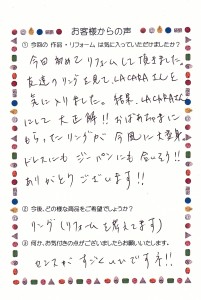 お客様からの声
① 今回の 作品・リフォーム は気に入っていただけましたか？
今回 初めて リフォームして頂きました。
友達のリングを見て、LACARAさんを
気に入りました。結果、LACARAさん
にして大正解!! おばあちゃまに
もらったリングが 今風に大変身
ドレスにも ジーパンにも 合いそう!!
ありがとうございます!!
② 今後、どの様な商品をご希望でしょうか？
リング (リフォームを考えてます)
③ 何か、お気付きの点がございましたらお願いいたします。
センスが すごくいいですネ!!